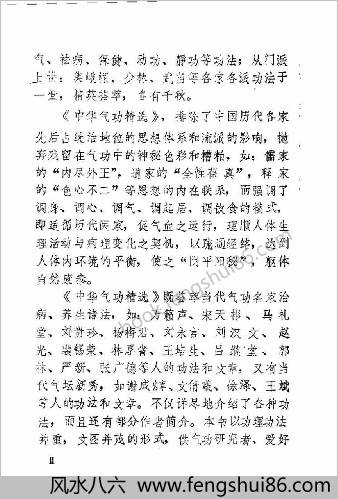 气、祛病、保健、动功、静功等功法；从门派
上讲：集峨嵋、少林、武当等各宗各派功法于
一堂，精英荟萃，各有千秋。
《中华气功精选》，排除了中国历代各家
先后占统治地位的思想体系和流派的影响，抛
弃残留在气功中的神秘色彩和糟粕，如：儒家
的“内尽外王”，道家的“全性葆真”，释家
的“色心不二”等思想的内在联系，而强调了
调身、调心、调气、调起居、调饮食的模式，
即适循历代医家，促气血之运行，理顺人体生
理活动与病理变化之契机，以疏通经络，达到
人体内环境的平衡，使之“阴平阳秘”，躯体
自然康泰。
《中华气功精选》既荟萃当代气功名家治
病、养生诸法，如：方箱声、宋天彬、马礼
堂、刘贵珍、杨梅君、刘永言、刘汉文、赵
光、裴锡荣、林厚省、王培生、吕继堂、郭
林、严新、张广德等人的功法和文章，又有当
代气坛新秀，如谢成、文倩、徐泽、王斌
等人的功法和文章。不仅详尽地介绍了各种功
法，而且还有部分作者简介。本书以功理功法
并重，文图并茂的形式，供气功研究者、爱好
Ⅱ
风水八六 www.fengshui86.com